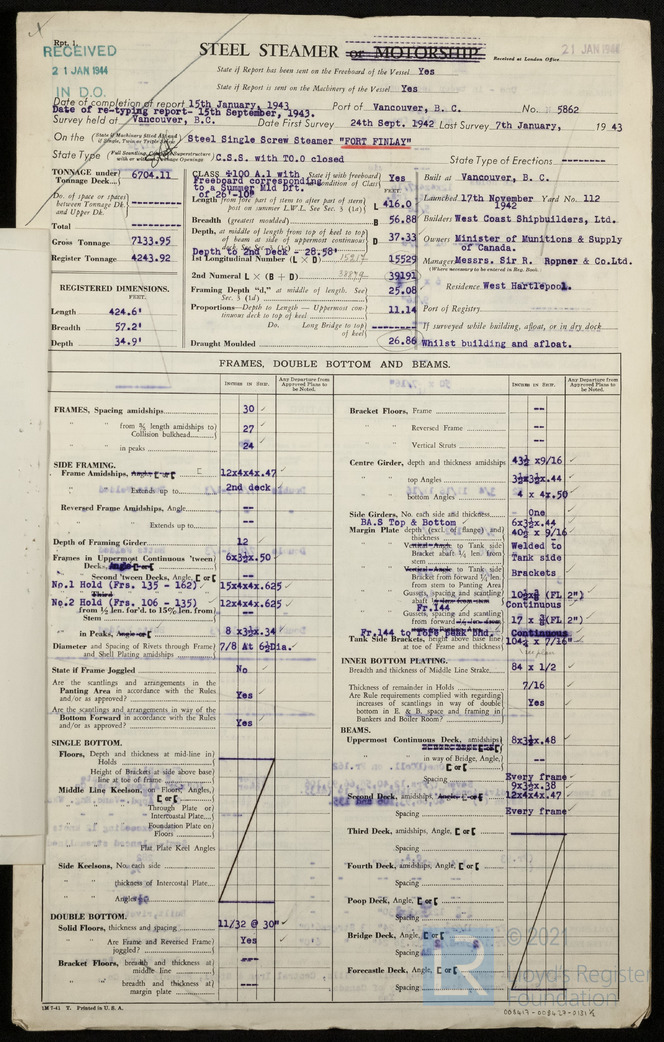 Rpt. 1.
RECEIVED
21 JAN 1944
IN D.O.
STEEL STEAMER or MOTORSHIP
21 JAN 1944
Received at London Office
State if Report has been sent on the Freeboard of the Vessel Yes
State if Report is sent on the Machinery of the Vessel Yes
Date of completion of report 15th January, 1943 Port of Vancouver, B. C. No. 5862
Date of re-typing report- 15th September, 1943.
Survey held at Vancouver, B.C. Date First Survey 24th Sept. 1942 Last Survey 7th January, 1943
On the Steel Single Screw Steamer "FORT FINLAY"
State Type C.S.S. with T.O.O closed State Type of Erections --------
TONNAGE under Tonnage Deck 6704.11
Do. of space or spaces between Tonnage Dk. and Upper Dk.
Total
Gross Tonnage 7133.95
Register Tonnage 4243.92
REGISTERED DIMENSIONS.
FEET.
Length 424.6'
Breadth 57.2'
Depth 34.9'
CLASS +100 A.1 with State if with freeboard condition of Class Yes
Freeboard corresponding to a Summer Mld Dft. of 26'-10"
FEET
Length from fore part of stem to after part of stern post on summer L.W.L. See Sec. 3 (1a) L 416.0
Breadth (greatest moulded) B 56.88
Depth, at middle of length from top of keel to top of beam at side of uppermost continuous deck D 37.33
Depth to 2nd Deck - 28.58'
1st Longitudinal Number (L x D) 15529
2nd Numeral L x (B + D) 39191
Framing Depth "d," at middle of length. See Sec. 3 (1d) 25.08
Proportions—Depth to Length—Uppermost continuous deck to top of keel 11.14
Do. Long Bridge to top of keel --------
Draught Moulded 26.86
Built at Vancouver, B. C.
Launched 17th November 1942 Yard No. 112
Builders West Coast Shipbuilders, Ltd.
Owners Minister of Munitions & Supply of Canada.
Manager Messrs. Sir R. Ropner & Co.Ltd.
(Where necessary to be entered in Reg. Book.)
Residence West Hartlepool.
Port of Registry
If surveyed while building, afloat, or in dry dock
Whilst building and afloat.
FRAMES, DOUBLE BOTTOM AND BEAMS.
INCHES IN SHIP. Any Departure from Approved Plans to be Noted.
FRAMES, Spacing amidships 30
" " from ⅗ length amidships to Collision bulkhead 27
" " in peaks 24
SIDE FRAMING.
Frame Amidships, Angle, [ or [ 12x4x4x.47
" " Extends up to 2nd deck
Reversed Frame Amidships, Angle --
" " Extends up to --
Depth of Framing Girder 12
Frames in Uppermost Continuous 'tween Decks, Angle [ or [ 6x3½x.50
" Second 'tween Decks, Angle, [ or [ --
No.1 Hold (Frs. 135 - 162) 15x4x4x.625
Third
No.2 Hold (Frs. 106 - 135) 12x4x4x.625
" from ½ len. for'd. to 15% len. from Stem
" in Peaks, Angle or [ 8 x3½x.34
Diameter and Spacing of Rivets through Frame and Shell Plating amidships 7/8 At 6½Dia.
State if Frame Joggled No
Are the scantlings and arrangements in the Panting Area in accordance with the Rules and/or as approved? Yes
Are the scantlings and arrangements in way of the Bottom Forward in accordance with the Rules and/or as approved? Yes
SINGLE BOTTOM.
Floors, Depth and thickness at mid-line in Holds
Height of Brackets at side above base line at toe of frame
Middle Line Keelson, on Floors, Angles, [ or [
" " Through Plate or Intercostal Plate
" " Foundation Plate on Floors
" " Flat Plate Keel Angles
Side Keelsons, No. each side
" " thickness of Intercostal Plate
" " Angles
DOUBLE BOTTOM.
Solid Floors, thickness and spacing 11/32 @ 30"
" " Are Frame and Reversed Frame joggled? Yes
Bracket Floors, breadth and thickness at middle line ---
" " breadth and thickness at margin plate ---
Bracket Floors, Frame --
" " Reversed Frame --
" " Vertical Struts --
Centre Girder, depth and thickness amidships 43½ x9/16
" " top Angles 3½x3½x.44
" " bottom Angles 4 x 4x.50
Side Girders, No. each side and thickness One
BA.S Top & Bottom 6x3½x.44
Margin Plate depth (excl. of flange) and thickness 40½ x 9/16
" " Vertical Angle to Tank side Bracket abaft ¼ len. from stem Welded to
" " Vertical Angle to Tank side Bracket from forward ¼ len. from stem to Panting Area Tank side
Brackets
" " Gussets, spacing and scantling abaft ¼ len. from stem Fr.144 Continuous
" " Gussets, spacing and scantling from forward ¼ len. from
Fr.144 to fore peak Bhd. Continuous
Tank Side Brackets, height above base line at toe of Frame and thickness 104½ x 7/16"
INNER BOTTOM PLATING.
Breadth and thickness of Middle Line Strake 84 x 1/2
Thickness of remainder in Holds 7/16
Are Rule requirements complied with regarding increases of scantlings in way of double bottom in E. & B. space and framing in Bunkers and Boiler Room? Yes
BEAMS.
Uppermost Continuous Deck, amidships 8x3½x.48
" " in way of Bridge, Angle, [ or [ --
" " Spacing Every frame
9x3½x.38
Second Deck, amidships, Angle, [ or [ 12x4x4x.47
" " Spacing Every frame
Third Deck, amidships, Angle, [ or [
" " Spacing
Fourth Deck, amidships, Angle, [ or [
" " Spacing
Poop Deck, Angle, [ or [
" " Spacing
Bridge Deck, Angle, [ or [
" " Spacing
Forecastle Deck, Angle, [ or [
" " Spacing
1M 7-41 T. Printed in U. S. A.
© 2021
Lloyd's Register
Foundation
003417-003427-0131½